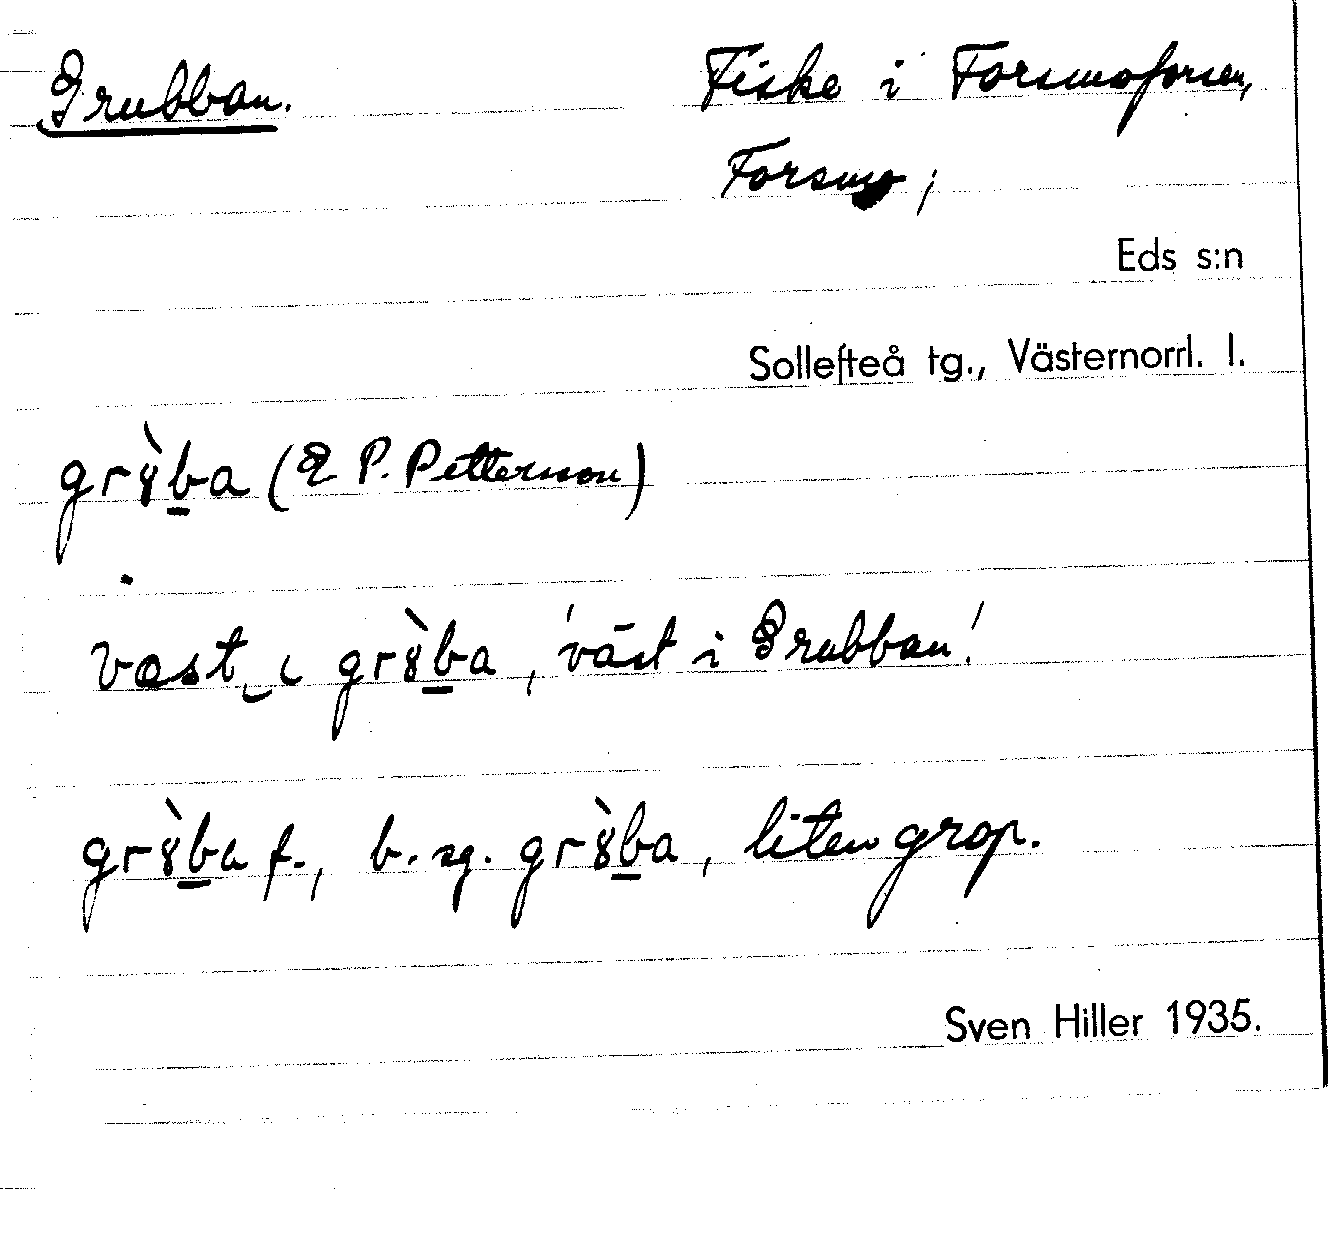 Grubban. Fiske i Forsmoforsen,
Forsmo;
Eds s:n
Sollefteå tg., Västernorrl. l.
gr8̀b̲a (E P. Pettersson)
vast‿ι gr8̀b̲a, 'väst i Grubban'
gr8̀b̲a f., b. sg. gr8̀b̲a, liten grop.
Sven Hiller 1935.